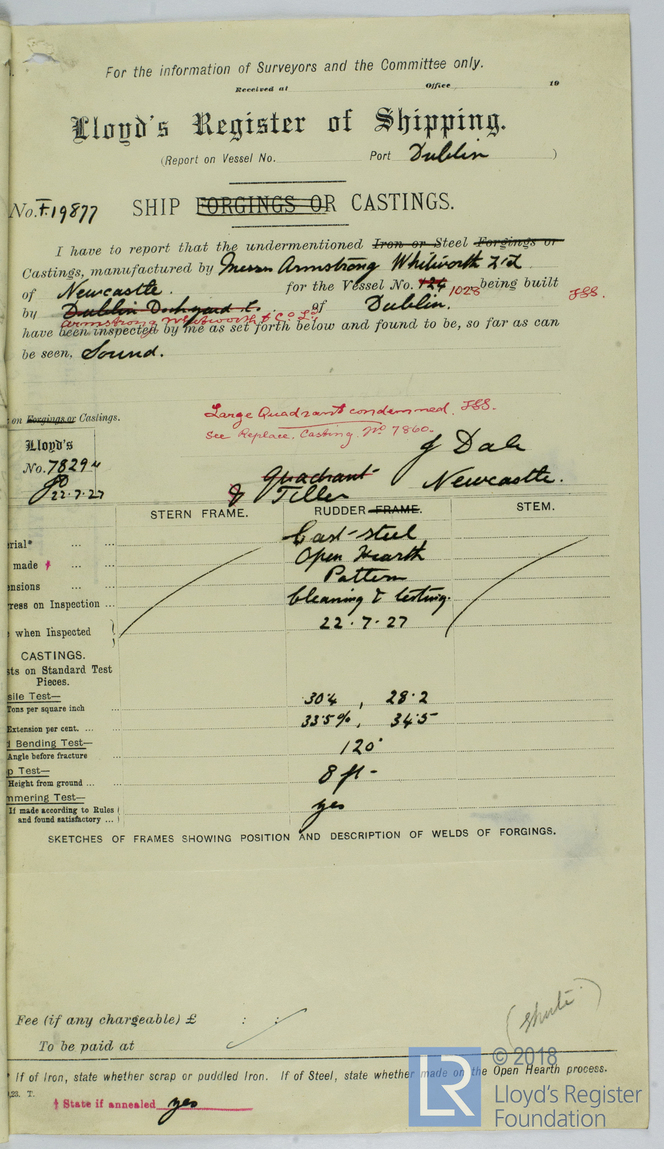 For the information of Surveyors and the Committee only.
Received at Office 19
Lloyd's Register of Shipping.
(Report on Vessel No. Port Dublin )
No. F.19877 SHIP FORGINGS OR CASTINGS.
I have to report that the undermentioned Iron or Steel Forgings or
Castings, manufactured by Messrs Armstrong Whitworth Ltd
of Newcastle. for the Vessel No. 124 1028 being built
by Dublin Dockyard Co of Dublin.
Armstrong Whitworth & Co Ld
have been inspected by me as set forth below and found to be, so far as can
be seen, Sound.
on Forgings or Castings.
Large Quadrant condemned.
See Replace. Casting No 7860.
Lloyd's
No. 7829
22.7.27
J Dale
Newcastle.
Quadrant
& Tiller
STERN FRAME. RUDDER FRAME. STEM.
rial* ... ... Cast steel
made ... ... Open Hearth
nsions ... Pattern
ress on Inspection ... Cleaning & testing.
when Inspected 22.7.27
CASTINGS.
sts on Standard Test
Pieces.
sile Test—
Tons per square inch ... 30.4, 28.2
Extension per cent. ... ... 33.5%, 34.5
d Bending Test—
Angle before fracture ... 120°
p Test—
Height from ground ... ... 8 ft -
mmering Test—
If made according to Rules
and found satisfactory ... yes
SKETCHES OF FRAMES SHOWING POSITION AND DESCRIPTION OF WELDS OF FORGINGS.
Fee (if any chargeable) £ : :
To be paid at
* If of Iron, state whether scrap or puddled Iron. If of Steel, state whether made on the Open Hearth process.
,23. T.
† State if annealed yes
© 2018
LR
Lloyd's Register
Foundation